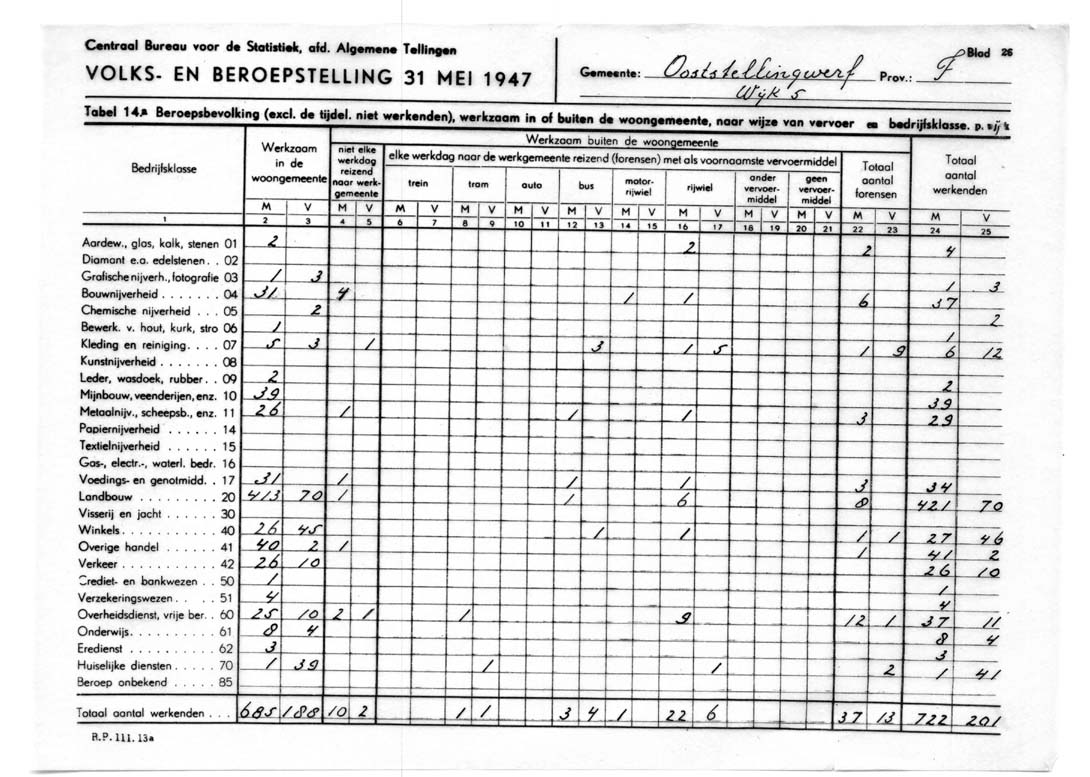 Centraal Bureau voor de Statistiek, afd. Algemene Tellingen
VOLKS- EN BEROEPSTELLING 31 MEI 1947
Gemeente: Ooststellingwerf Prov.: F Blad 26
Wijk 5
Tabel 14.a Beroepsbevolking (excl. de tijdel. niet werkenden), werkzaam in of buiten de woongemeente, naar wijze van vervoer en bedrijfsklasse.
Bedrijfsklasse
Werkzaam in de woongemeente
Werkzaam buiten de woongemeente
niet elke werkdag reizend naar werkgemeente
elke werkdag naar de werkgemeente reizend (forensen) met als voornaamste vervoermiddel
trein tram auto bus motor-rijwiel rijwiel ander vervoer-middel geen vervoer-middel
Totaal aantal forensen
Totaal aantal werkenden
M V M V M V M V M V M V M V M V M V M V M V M V
1 2 3 4 5 6 7 8 9 10 11 12 13 14 15 16 17 18 19 20 21 22 23 24 25
Aardew., glas, kalk, stenen 01 2 2 2 4
Diamant e.a. edelstenen . . 02
Grafische nijverh., fotografie 03 1 3 1 3
Bouwnijverheid . . . . . . . 04 31 4 1 1 6 37
Chemische nijverheid . . . 05 2 2
Bewerk. v. hout, kurk, stro 06 1 1
Kleding en reiniging. . . . 07 5 3 1 3 1 5 1 9 6 12
Kunstnijverheid . . . . . . . 08
Leder, wasdoek, rubber. . 09 2 2
Mijnbouw, veenderijen, enz. 10 39 39
Metaalnijv., scheepsb., enz. 11 26 1 1 1 3 29
Papiernijverheid . . . . . . 14
Textielnijverheid . . . . . . 15
Gas-, electr.-, waterl. bedr. 16
Voedings- en genotmidd. . 17 31 1 1 1 3 34
Landbouw . . . . . . . . . 20 413 70 1 1 6 8 421 70
Visserij en jacht . . . . . . 30
Winkels. . . . . . . . . . . 40 26 45 1 1 1 1 27 46
Overige handel . . . . . . 41 40 2 1 1 41 2
Verkeer . . . . . . . . . . . 42 26 10 26 10
Crediet- en bankwezen . . 50 1 1
Verzekeringswezen. . . . 51 4 4
Overheidsdienst, vrije ber. . 60 25 10 2 1 1 9 12 1 37 11
Onderwijs. . . . . . . . . . 61 8 4 8 4
Eredienst . . . . . . . . . . 62 3 3
Huiselijke diensten . . . . . 70 1 39 1 1 2 1 41
Beroep onbekend . . . . . 85
Totaal aantal werkenden . . . 685 188 10 2 1 1 3 4 1 22 6 37 13 722 201
R.P. 111. 13a